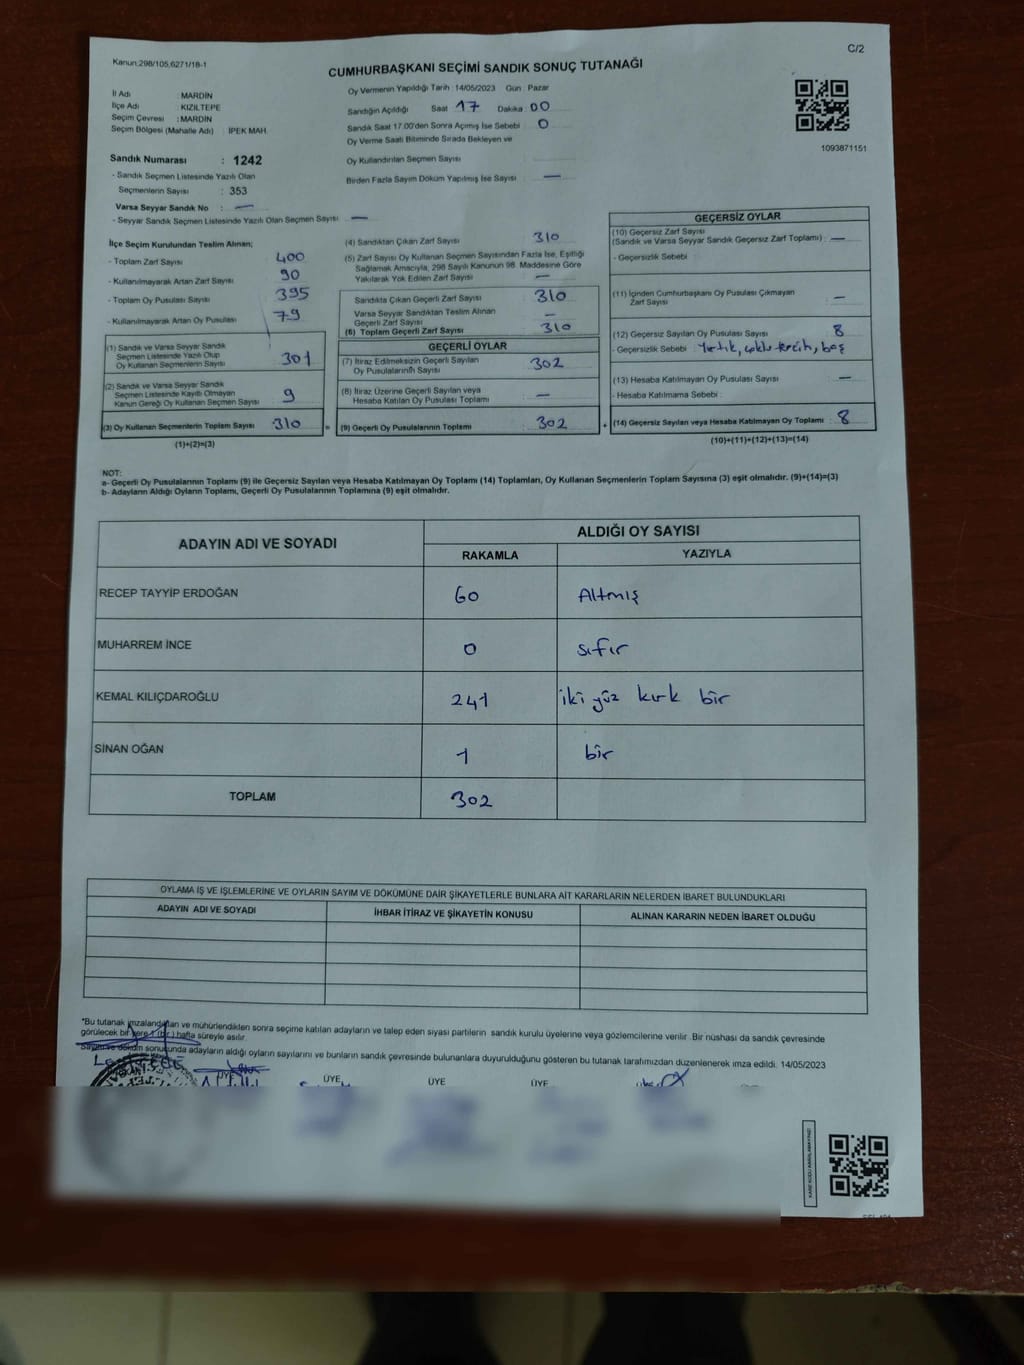 Kanun:298/105,6271/18-1
C/2
CUMHURBAŞKANI SEÇİMİ SANDIK SONUÇ TUTANAĞI
İl Adı : MARDİN
İlçe Adı : KIZILTEPE
Seçim Çevresi : MARDİN
Seçim Bölgesi (Mahalle Adı) : İPEK MAH.
Sandık Numarası : 1242
- Sandık Seçmen Listesinde Yazılı Olan
Seçmenlerin Sayısı : 353
Varsa Seyyar Sandık No : —
- Seyyar Sandık Seçmen Listesinde Yazılı Olan Seçmen Sayısı : —
Oy Vermenin Yapıldığı Tarih : 14/05/2023 Gün : Pazar
Sandığın Açıldığı Saat 17 Dakika : 00
Sandık Saat 17.00'den Sonra Açılmış İse Sebebi : 0
Oy Verme Saati Bitiminde Sırada Bekleyen ve
Oy Kullandırılan Seçmen Sayısı
Birden Fazla Sayım Döküm Yapılmış İse Sayısı : —
1093871151
İlçe Seçim Kurulundan Teslim Alınan;
- Toplam Zarf Sayısı : 400
- Kullanılmayarak Artan Zarf Sayısı : 90
- Toplam Oy Pusulası Sayısı : 395
- Kullanılmayarak Artan Oy Pusulası : 79
(1) Sandık ve Varsa Seyyar Sandık
Seçmen Listesinde Yazılı Olup
Oy Kullanan Seçmenlerin Sayısı : 301
(2) Sandık ve Varsa Seyyar Sandık
Seçmen Listesinde Kayıtlı Olmayan
Kanun Gereği Oy Kullanan Seçmen Sayısı : 9
(3) Oy Kullanan Seçmenlerin Toplam Sayısı : 310
(1)+(2)=(3)
(4) Sandıktan Çıkan Zarf Sayısı : 310
(5) Zarf Sayısı Oy Kullanan Seçmen Sayısından Fazla İse, Eşitliği
Sağlamak Amacıyla, 298 Sayılı Kanunun 98. Maddesine Göre
Yakılarak Yok Edilen Zarf Sayısı : —
Sandıkta Çıkan Geçerli Zarf Sayısı : 310
Varsa Seyyar Sandıktan Teslim Alınan
Geçerli Zarf Sayısı : —
(6) Toplam Geçerli Zarf Sayısı : 310
GEÇERLİ OYLAR
(7) İtiraz Edilmeksizin Geçerli Sayılan
Oy Pusulalarının Sayısı : 302
(8) İtiraz Üzerine Geçerli Sayılan veya
Hesaba Katılan Oy Pusulası Toplamı : —
= (9) Geçerli Oy Pusulalarının Toplamı : 302
GEÇERSİZ OYLAR
(10) Geçersiz Zarf Sayısı
(Sandık ve Varsa Seyyar Sandık Geçersiz Zarf Toplamı) : —
- Geçersizlik Sebebi :
(11) İçinden Cumhurbaşkanı Oy Pusulası Çıkmayan
Zarf Sayısı : —
(12) Geçersiz Sayılan Oy Pusulası Sayısı : 8
- Geçersizlik Sebebi : Yırtık, çoklu tercih, boş
(13) Hesaba Katılmayan Oy Pusulası Sayısı : —
- Hesaba Katılmama Sebebi :
+ (14) Geçersiz Sayılan veya Hesaba Katılmayan Oy Toplamı : 8
(10)+(11)+(12)+(13)=(14)
NOT:
a- Geçerli Oy Pusulalarının Toplamı (9) ile Geçersiz Sayılan veya Hesaba Katılmayan Oy Toplamı (14) Toplamları, Oy Kullanan Seçmenlerin Toplam Sayısına (3) eşit olmalıdır. (9)+(14)=(3)
b- Adayların Aldığı Oyların Toplamı, Geçerli Oy Pusulalarının Toplamına (9) eşit olmalıdır.
ADAYIN ADI VE SOYADI
ALDIĞI OY SAYISI
RAKAMLA YAZIYLA
RECEP TAYYİP ERDOĞAN 60 Altmış
MUHARREM İNCE 0 sıfır
KEMAL KILIÇDAROĞLU 241 iki yüz kırk bir
SİNAN OĞAN 1 bir
TOPLAM 302
OYLAMA İŞ VE İŞLEMLERİNE VE OYLARIN SAYIM VE DÖKÜMÜNE DAİR ŞİKAYETLERLE BUNLARA AİT KARARLARIN NELERDEN İBARET BULUNDUKLARI
ADAYIN ADI VE SOYADI İHBAR İTİRAZ VE ŞİKAYETİN KONUSU ALINAN KARARIN NEDEN İBARET OLDUĞU
*Bu tutanak imzalandıktan ve mühürlendikten sonra seçime katılan adayların ve talep eden siyasi partilerin sandık kurulu üyelerine veya gözlemcilerine verilir. Bir nüshası da sandık çevresinde
görülecek bir yere 1 (bir) hafta süreyle asılır.
Sayım ve döküm sonucunda adayların aldığı oyların sayılarını ve bunların sandık çevresinde bulunanlara duyurulduğunu gösteren bu tutanak tarafımızdan düzenlenerek imza edildi. 14/05/2023
ÜYE ÜYE ÜYE ÜYE